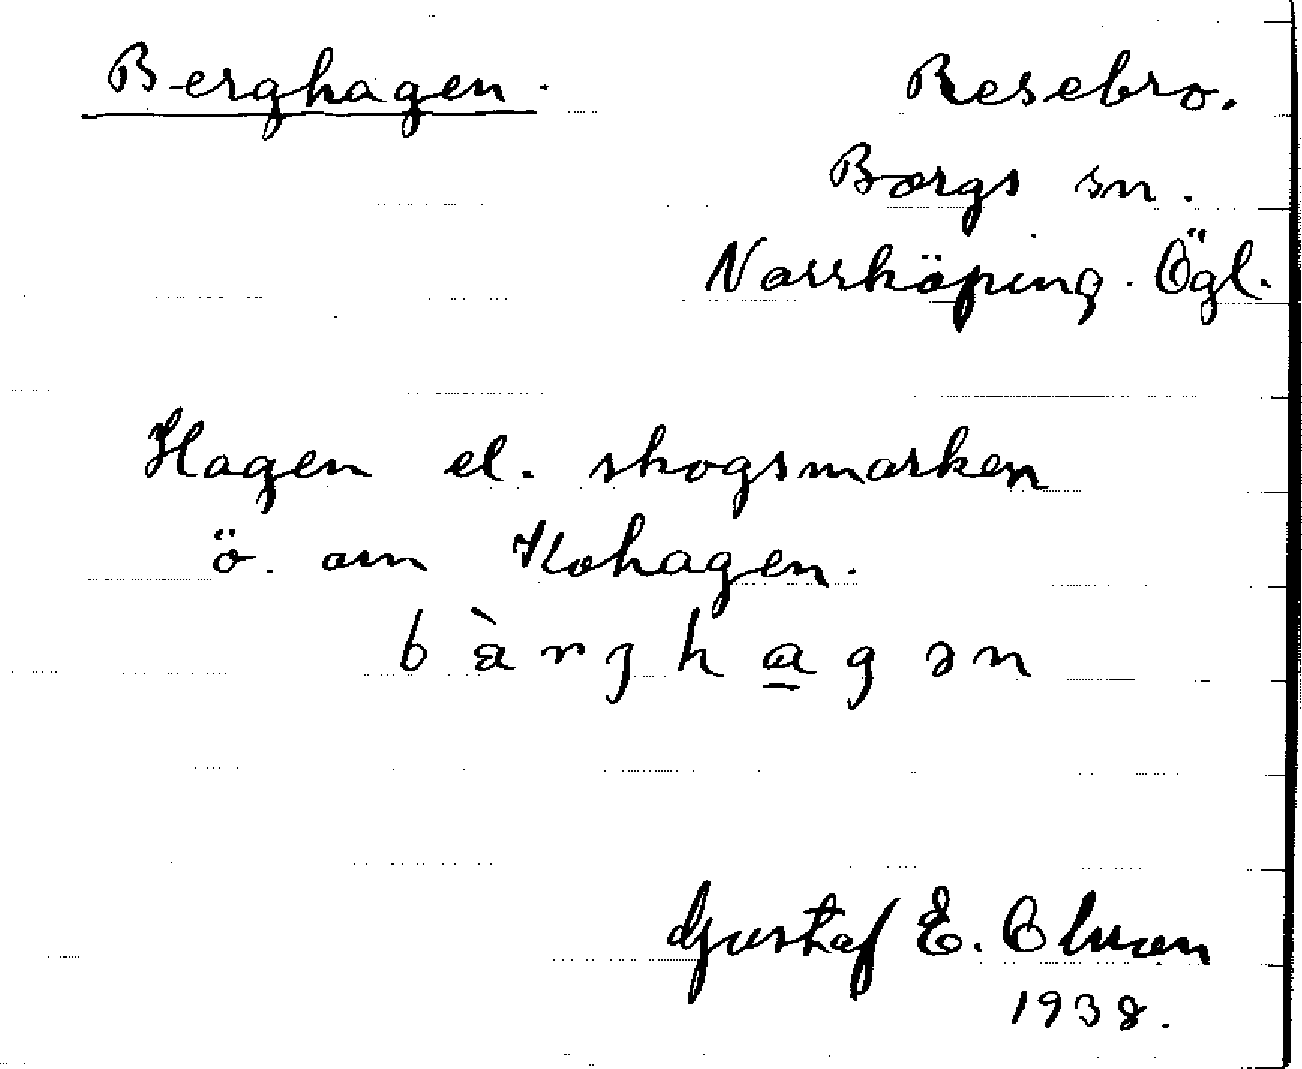 Berghagen.
Resebro.
Borgs sn.
Norrköping. Ögl.
Hagen el. skogsmarken
ö. om Kohagen.
bàrghagən
Gustaf E. Olsson
1938.